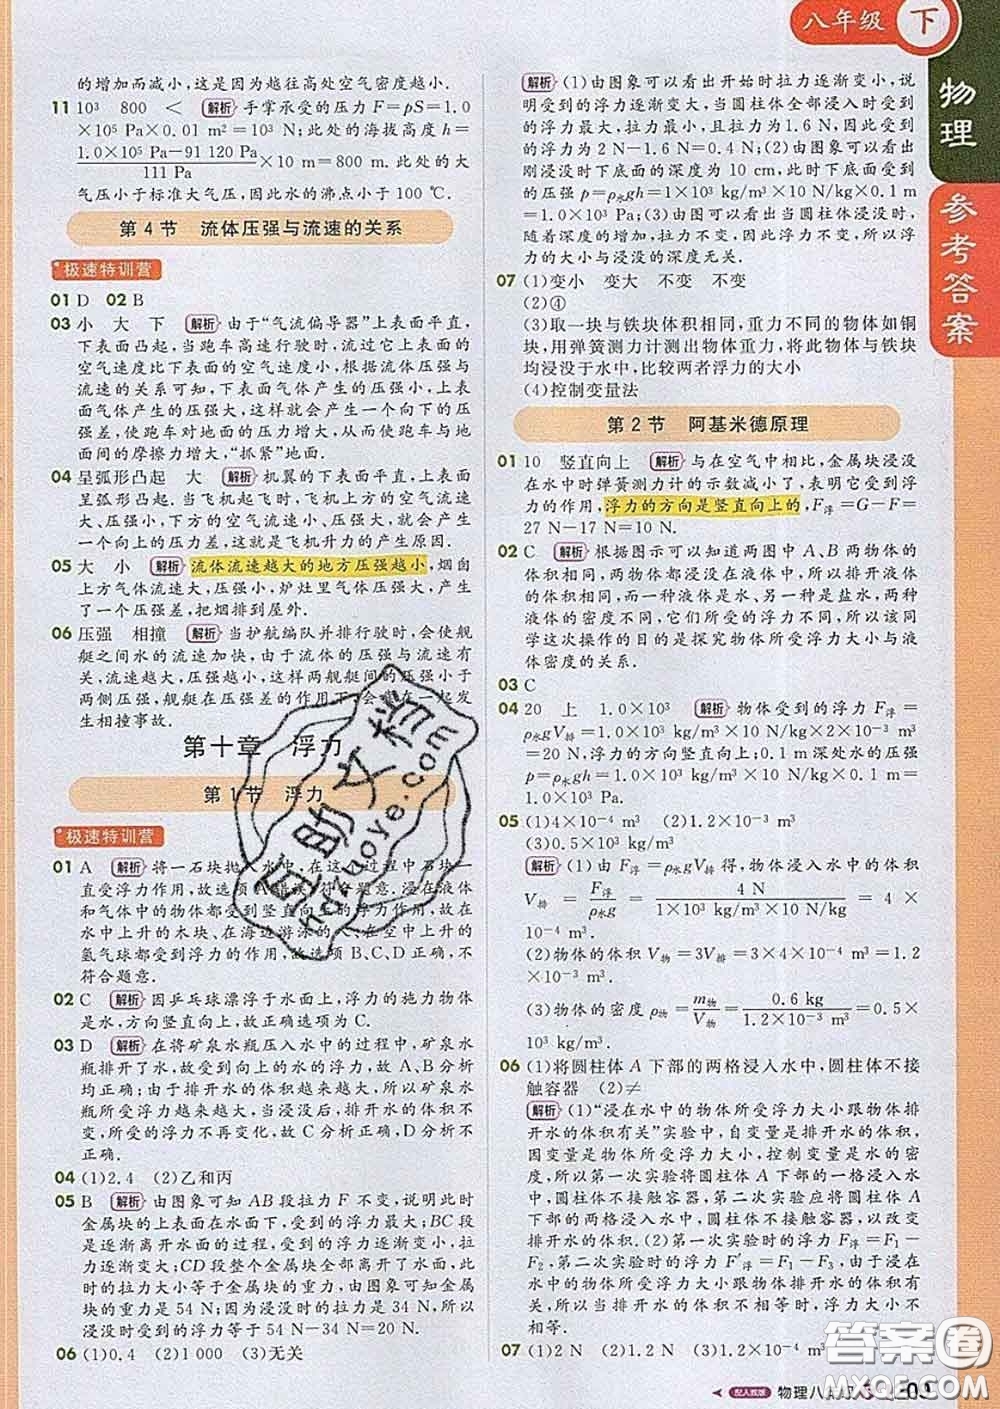 八年级 下
物理
参考答案
的增加而减小，这是因为越往高处空气密度越小.
11 10³ 800 < 解析 手掌承受的压力 F=pS=1.0
×10⁵ Pa×0.01 m²=10³ N；此处的海拔高度 h=
1.0×10⁵ Pa-91 120 Pa
111 Pa
×10 m=800 m. 此处的大
气压小于标准大气压，因此水的沸点小于 100 ℃.
第4节 流体压强与流速的关系
极速特训营
01 D 02 B
03 小 大 下 解析 由于“气流偏导器”上表面平直，
下表面凸起，当跑车高速行驶时，流过上表面的
空气速度比下表面的空气速度小，根据流体压强与
流速的关系可知，下表面气体产生的压强小，上表
面气体产生的压强大，这样就会产生一个向下的压
强，使跑车对地面的压力增大，从而使跑车与地
面间的摩擦力增大，“抓紧”地面.
04 呈弧形凸起 大 解析 机翼的下表面平直，上表面
呈弧形凸起. 当飞机起飞时，飞机上方的空气流速
大，下方的空气流速小，当速度够大时，就会产生
一个向上的压力差，这就是飞机升力的产生原因.
05 大 小 解析 流体流速越大的地方压强越小，烟囱
上方气体流速大，压强小，炉灶里气体压强大，产生
了一个压强差，把烟排到屋外.
06 压强 相撞 解析 当护航编队并排行驶时，会使舰
艇之间水的流速加快，由于流体的压强与流速有
关，流速越大，压强越小，这样两舰艇间的压强小于
两侧压强，舰艇在压强差的作用下
生相撞事故.
第十章 浮力
第1节 浮力
极速特训营
01 A 解析 将一石块抛入水中，在下沉过程中石块一
直受浮力作用，故选项
和气体中的物体都受到竖直向上的浮力作用，故在
水中上升的木块、在海边游泳的人、在空中上升的
氢气球都受浮力作用，故选项B、C、D正确，不
符合题意.
02 C 解析 因乒乓球漂浮于水面上，浮力的施力物体
是水，方向竖直向上，故正确选项为C.
03 D 解析 在将矿泉水瓶压入水中的过程中，排开水
的体积越来越大，水面也逐渐上升，故A、B分析
均正确；由于排开水的体积越来越大，所以矿泉水
瓶所受浮力越来越大，当浸没后，排开水的体积不
变，浮力也不再变化，故C分析正确，D分析不
正确.
04 (1)2.4 (2)乙和丙
05 B 解析 由图象可知AB段拉力 F 不变，说明此时
金属块的上表面在水面下，受到的浮力最大；BC段
是逐渐离开水面的过程，受到的浮力逐渐变小，拉
力逐渐变大；CD段整个金属块全部离开了水面，因
此时的拉力大小等于金属块的重力，由图象可知金
属块的重力为54 N；因为浸没时的拉力是34 N，所以
浸没时受到的浮力等于54 N-34 N=20 N.
06 (1)0.4 (2)1 000 (3)无关
解析 (1)由图象可以看出开始时拉力逐渐变小，说
明受到的浮力逐渐变大，当圆柱体全部浸入时受到
的浮力最大，拉力最小，且拉力为1.6 N，因此受到
的浮力为2 N-1.6 N=0.4 N；(2)由图象可以看出
刚浸没时下底面的深度为 10 cm，此时下底面受到
的压强 p=ρ水gh=1×10³ kg/m³×10 N/kg×0.1 m
=1 000 Pa；(3)由图象可以看出当圆柱体浸没时，
随着深度的增加，拉力不变，因此浮力不变，所以浮力
的大小与浸没的深度无关.
07 (1)变小 变大 不变 不变
(2)④
(3)取一块与铁块体积相同，重力不同的物体如铜
块，用弹簧测力计测出物体重力，将此物体与铁块
均浸没于水中，比较两者浮力的大小
(4)控制变量法
第2节 阿基米德原理
01 10 竖直向上 解析 与在空气中相比，金属块浸没
在水中时弹簧测力计的示数减小了，表明它受到浮
力的作用，浮力的方向是竖直向上的，F浮=G-F=
27 N-17 N=10 N.
02 C 解析 根据图示可以知道两图中A、B两物体的
体积相同，两物体都浸没在液体中，所以排开液体的
体积相同，而一种液体是水、另一种是盐水，两种
液体的密度不同，它们所受的浮力不同，所以该同
学这次操作的目的是探究物体所受浮力大小与液
体密度的关系.
03 C
04 20 上 1.0×10³ 解析 物体受到的浮力 F浮=
ρ水gV排=1.0×10³ kg/m³×10 N/kg×2×10⁻³ m³
=20 N，浮力的方向竖直向上；0.1 m深处水的压强
p=ρ水gh=1.0×10³ kg/m³×10 N/kg×0.1 m=
1.0×10³ Pa.
05 (1)4×10⁻⁴ m³ (2)1.2×10⁻³ m³
(3)0.5×10³ kg/m³
解析 (1)由 F浮=ρ水gV排得，物体浸入水中的体积
V排=F浮/ρ水g=4 N/1×10³ kg/m³×10 N/kg=4×
10⁻⁴ m³.
(2)物体的体积 V物=3V排=3×4×10⁻⁴ m³=1.2
×10⁻³ m³.
(3)物体的密度 ρ物=m物/V物=0.6 kg/1.2×10⁻³ m³=0.5×10³
kg/m³.
06 (1)将圆柱体 A 下部的两格浸入水中，圆柱体不接
触容器 (2)≠
解析 (1)“浸在水中的物体所受浮力大小跟物体排
开水的体积有关”实验中，自变量是排开水的体积，
因变量是物体所受浮力大小，控制变量是水的密
度，所以第一次实验将圆柱体 A 下部的一格浸入
水中，圆柱体不接触容器，第二次实验应将圆柱体A
下部的两格浸入水中，圆柱体不接触容器，以改变
排开水的体积. (2)第一次实验时的浮力 F浮=F₁-
F₂，第二次实验时的浮力 F′浮=F₁-F₃，因为浸
在水中的物体所受浮力大小跟物体排开水的体积有
关，所以当排开水的体积不相等时，浮力大小不
相等.
07 (1)2 N (2)1.2 N (3)
配人教版 物理八年级
百助文档
答案圈
MXQE.COM